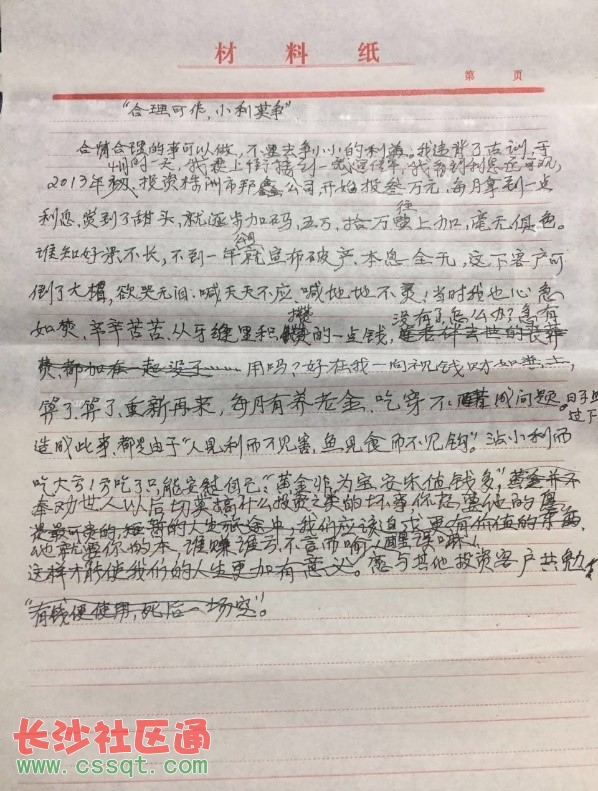 材料纸
第 页
"合理可作,小利莫争"
合情合理的事可以做,不要去争小小的利益。我违背了古训,于
4月的一天,我在上街接到一张宣传单,我看到利息还可观,
2013年初,投资株洲市邦鑫公司,开始投叁万元,每月拿到一点
利息,尝到了甜头,就逐步加码,五万,拾万往上加,毫无惧色。
谁知好景不长,不到一年公司就宣布破产,本息全无,这下客户可
倒了大楣,欲哭无泪,喊天天不应,喊地地不灵!当时我也心急
如焚,辛辛苦苦,从牙缝里积攒的一点钱,没有了,怎么办?急有
费,都加在一起没了……用吗?好在我一向视钱财如粪土,
算了,算了,重新再来,每月有养老金,吃穿不成问题。日子
过下
造成此事,都是由于"人见利而不见害,鱼见食而不见钩"。沾小利而
吃大亏!亏吃了只能安慰自己:"黄金非为宝,安乐值钱多",黄金并不
奉劝世人以后切莫搞什么投资之类的坏事,你想要他的息,
是最可贵的,短暂的人生旅途中,我们应该追求更有价值的东西,
他就要你的本,谁赚谁亏不言而喻,醒悟嘛!
这样才能使我们的人生更加有意义。愿与其他投资客户共勉
"有钱便使用,死后一场空"。
长沙社区通
www.cssqt.com